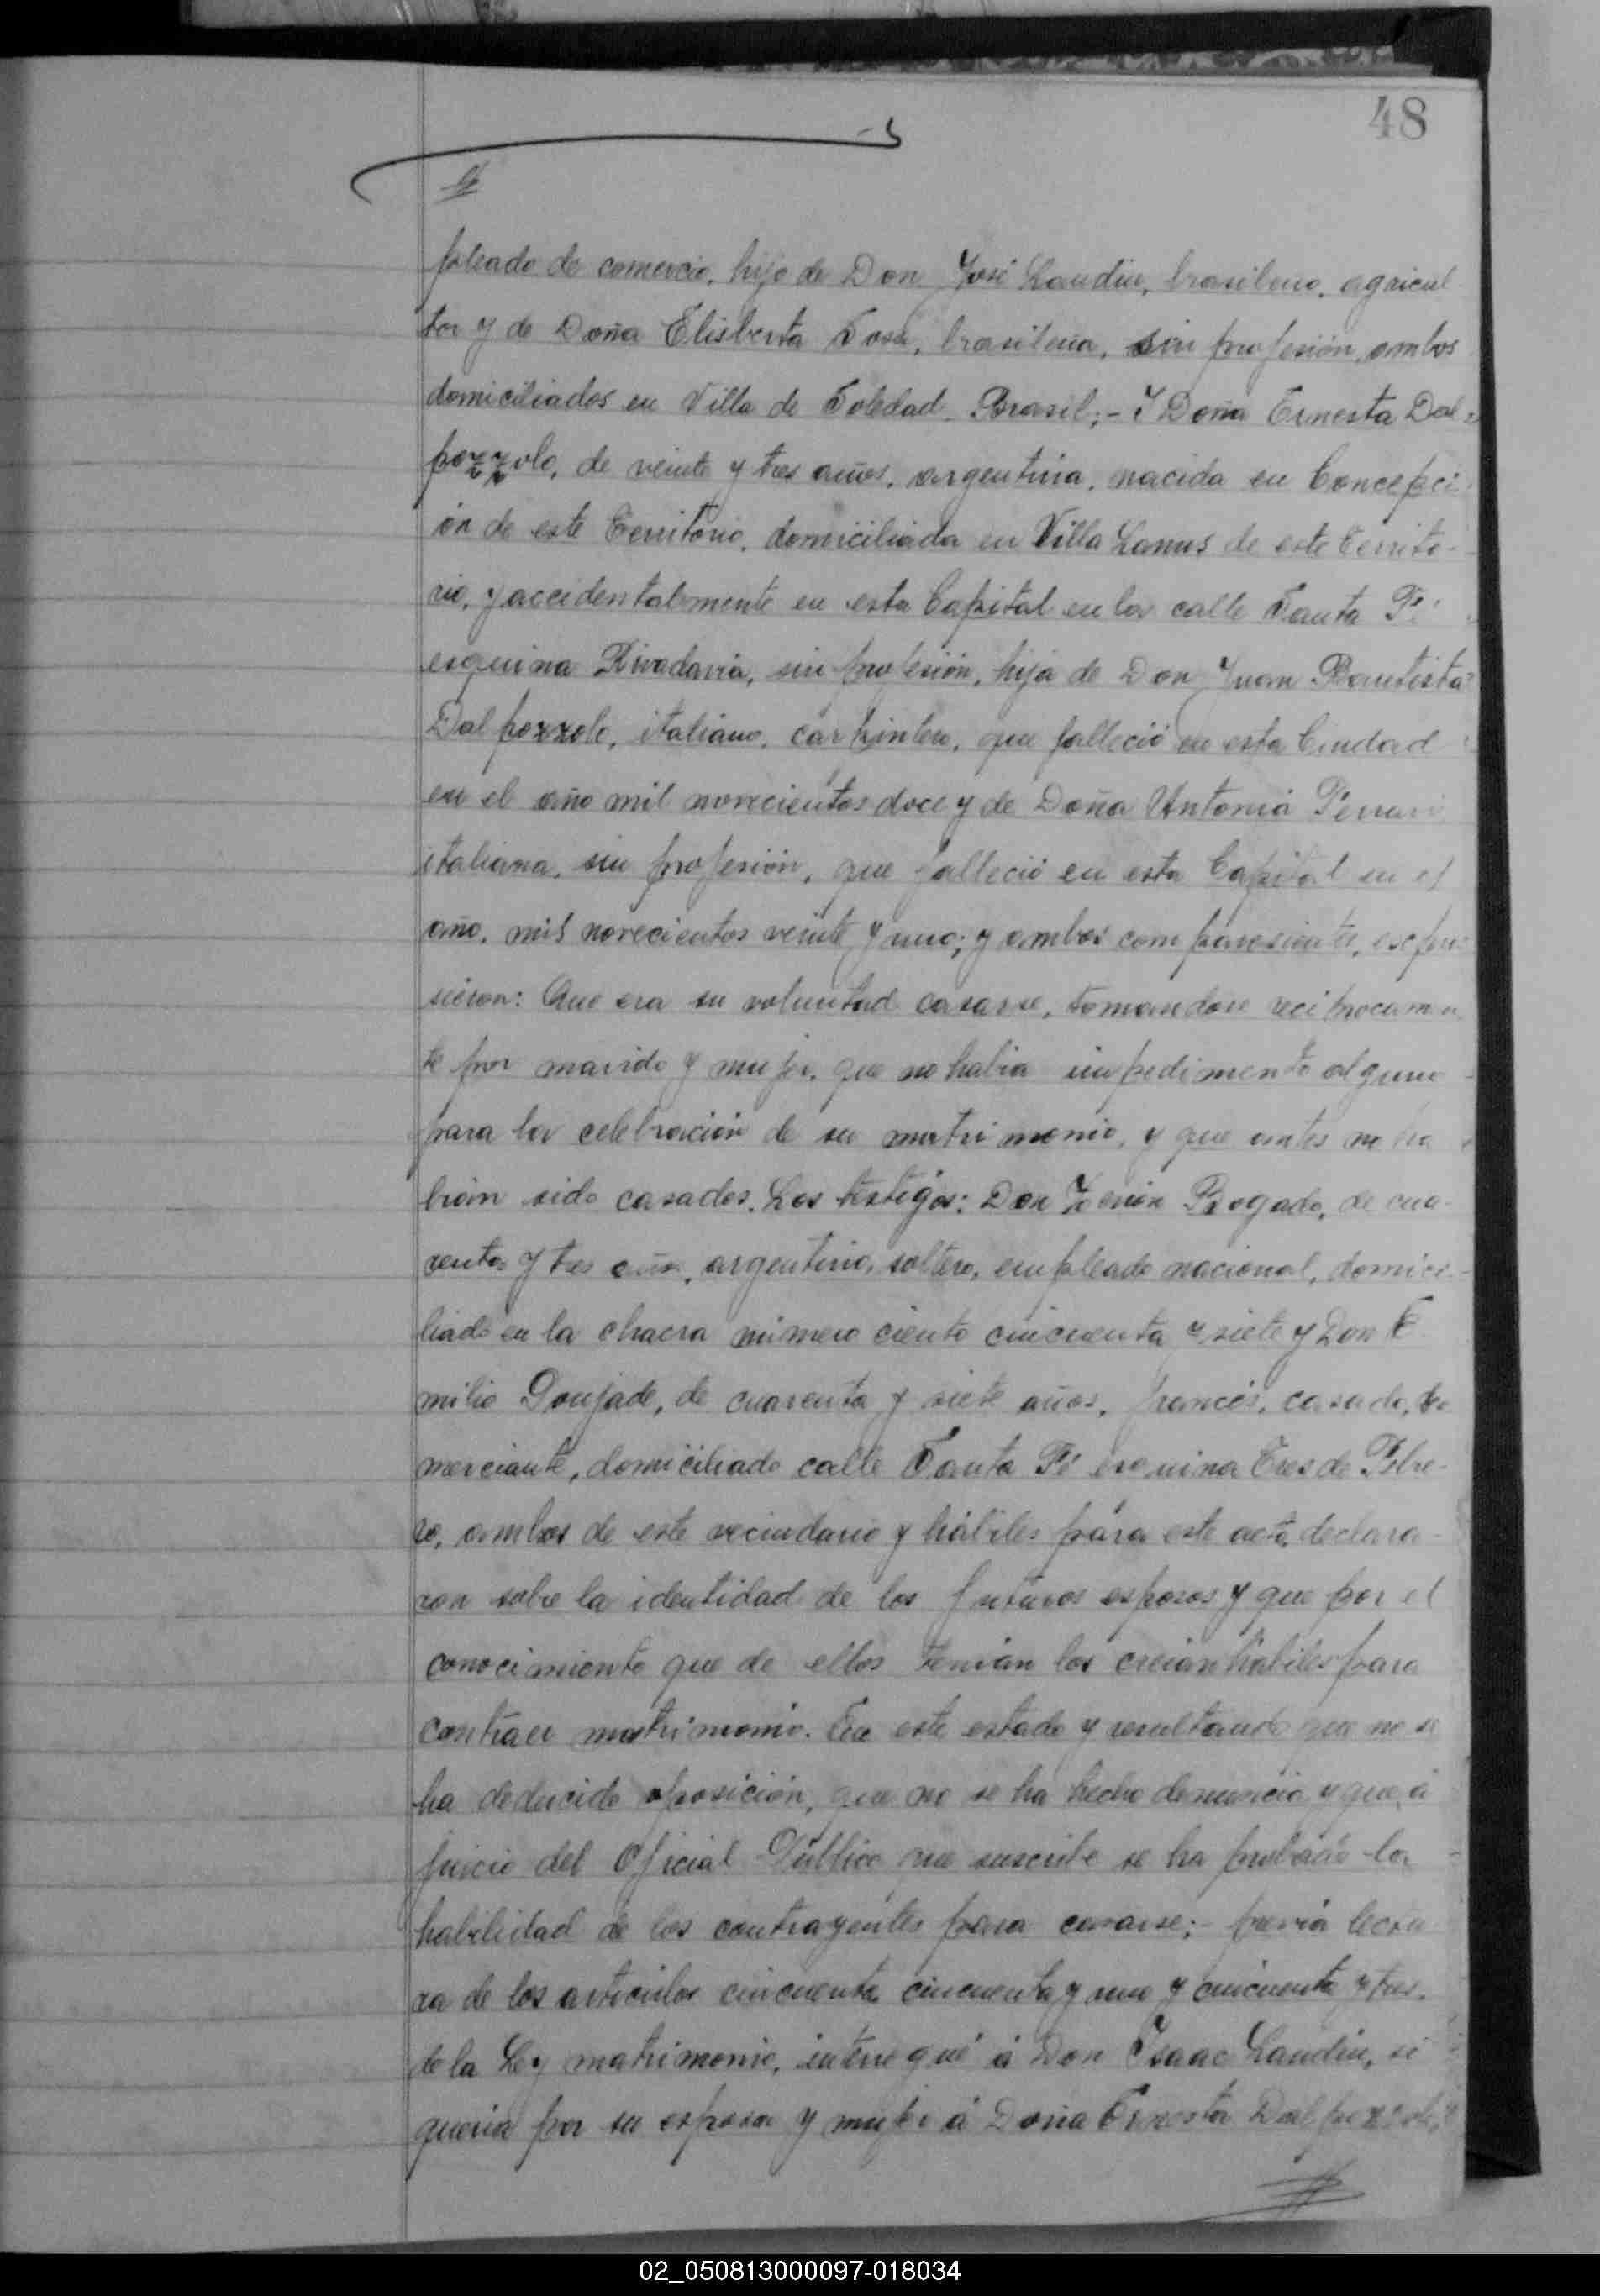 48
pleado de comercio, hijo de Don José Landin, brasilero, agricul
tor y de Doña Elisberta Sosa, brasilera, sin profesión, ambos
domiciliados en Villa de Soledad, Brasil;- Y Doña Ernesta Dal-
pozzolo, de veinte y tres años, argentina, nacida en Concepci
ón de este Territorio, domiciliada en Villa Lanus de este Territo-
rio, y accidentalmente en esta Capital en la calle Santa Fé
esquina Rivadavia, sin profesión, hija de Don Juan Bautista
Dalpozzolo, italiano, carpintero, que falleció en esta Ciudad
en el año mil novecientos doce y de Doña Antonia Ferrari
italiana, sin profesión, que falleció en esta Capital en el
año, mil novecientos veinte y uno; y ambos comparecientes, expu
sieron: Que era su voluntad casarse, tomandose reciprocamen
te por marido y mujer, que no habia impedimento alguno
para la celebración de su matrimonio, y que antes no ha
bian sido casados. Los testigos: Don Zenón Bogado, de cua-
renta y tres años, argentino, soltero, empleado nacional, domici-
liado en la chacra número ciento cincuenta y siete y Don E
milio Goujade, de cuarenta y siete años, francés, casado, co
merciante, domiciliado calle Santa Fé esquina Tres de Febre-
ro, ambos de este vecindario y hábiles para este acto, declara-
ron sobre la identidad de los futuros esposos y que por el
conocimiento que de ellos tenian los creian hábiles para
contraer matrimonio. En este estado y resultando que no se
ha deducido oposición, que no se ha hecho denuncia y que á
juicio del Oficial Público que suscribe se ha probado la
habilidad de los contrayentes para casarse;- previa lectu
ra de los articulos cincuenta, cincuenta y uno y cincuenta y tres,
de la Ley matrimonio, interrogué á Don Isaac Landin, si
queria por su esposa y mujer á Doña Ernesta Dalpozzolo,
02_050813000097-018034